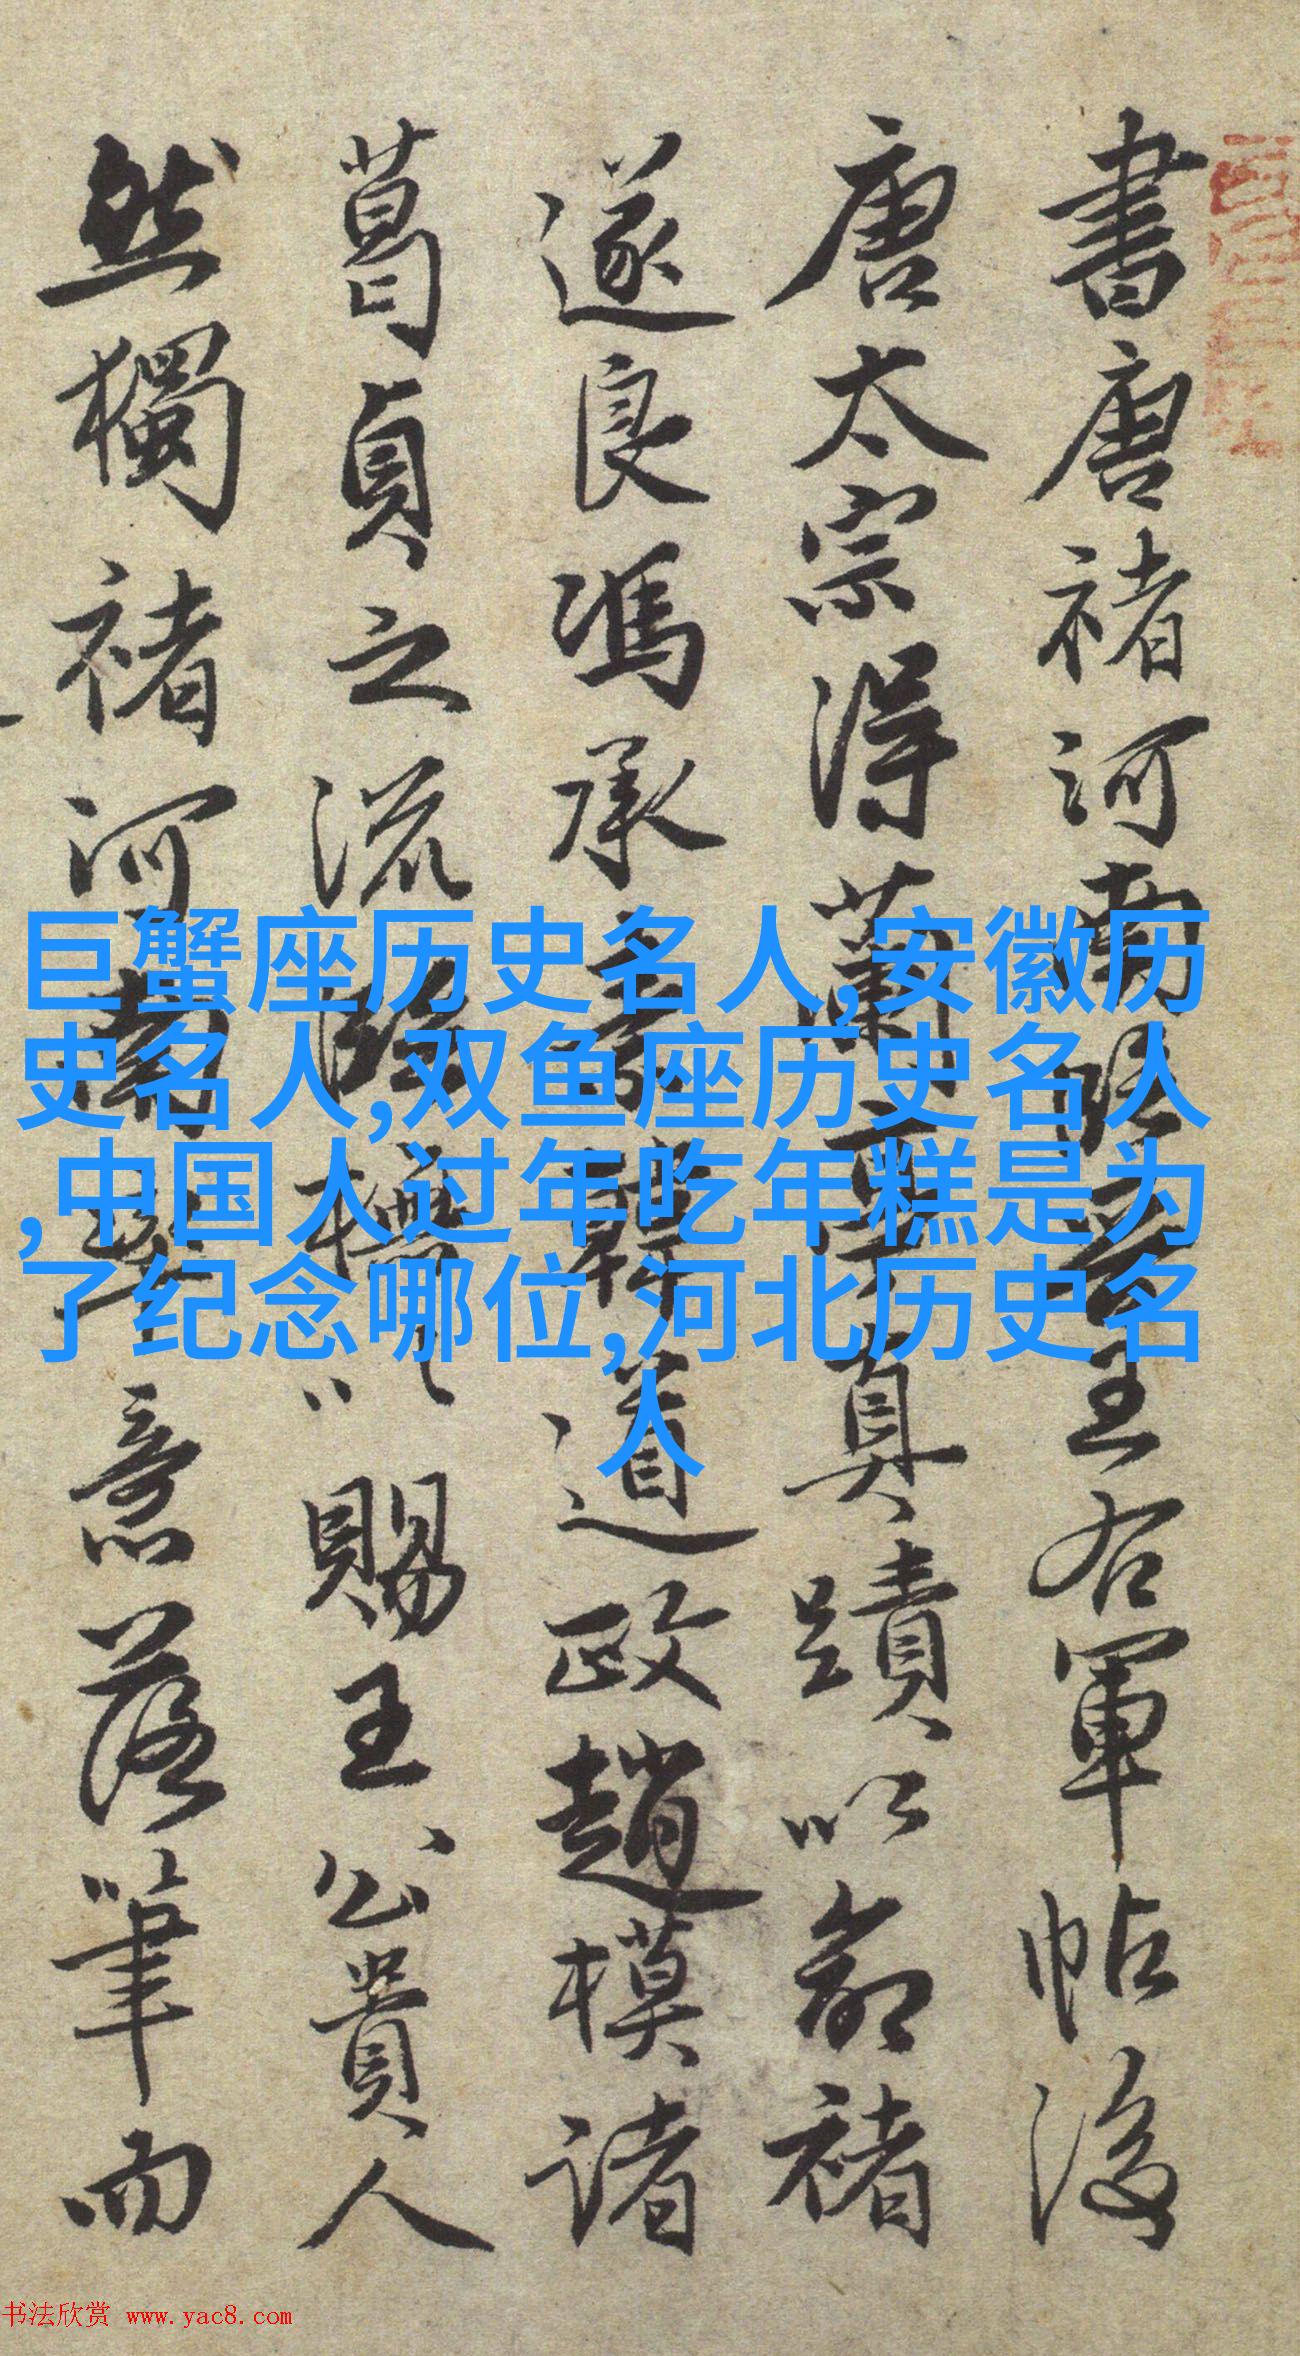 書唐褚河南臨晉王右軍帖後
唐太宗得蘭亭真蹟以命褚
遂良馮承素韓道政趙模諸
葛貞之流臨以賜王公貴人
然獨褚河南率意落筆而
巨蟹座历史名人,安徽历
史名人,双鱼座历史名人
,中国人过年吃年糕是为
了纪念哪位,河北历史名
人
书法欣赏 www.yac8.com